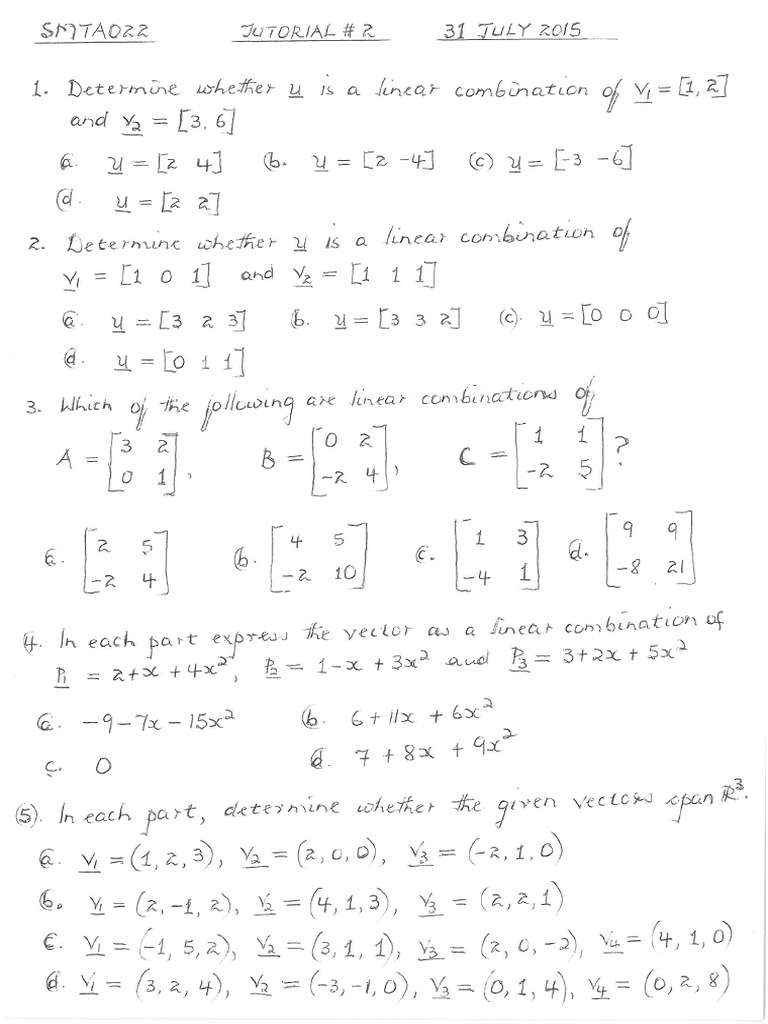 SMTA022 TUTORIAL # 2 31 JULY 2015
1. Determine whether u is a linear combination of v1 = [1, 2]
and v2 = [3, 6]
a. u = [2 4] (b. u = [2 -4] (c) u = [-3 -6]
(d. u = [2 2]
2. Determine whether u is a linear combination of
v1 = [1 0 1] and v2 = [1 1 1]
a. u = [3 2 3] b. u = [3 3 2] (c). u = [0 0 0]
d. u = [0 1 1]
3. Which of the following are linear combinations of
A = [3 2; 0 1], B = [0 2; -2 4], C = [1 1; -2 5]?
a. [2 5; -2 4] (b. [4 5; -2 10] c. [1 3; -4 1] d. [9 9; -8 21]
4. In each part express the vector as a linear combination of
P1 = 2+x+4x², P2 = 1-x+3x² and P3 = 3+2x+5x²
a. -9-7x-15x² b. 6+11x+6x²
c. 0 d. 7+8x+9x²
(5). In each part, determine whether the given vectors span R³.
a. v1 = (1, 2, 3), v2 = (2, 0, 0), v3 = (-2, 1, 0)
b. v1 = (2, -1, 2), v2 = (4, 1, 3), v3 = (2, 2, 1)
c. v1 = (-1, 5, 2), v2 = (3, 1, 1), v3 = (2, 0, -2), v4 = (4, 1, 0)
d. v1 = (3, 2, 4), v2 = (-3, -1, 0), v3 = (0, 1, 4), v4 = (0, 2, 8)